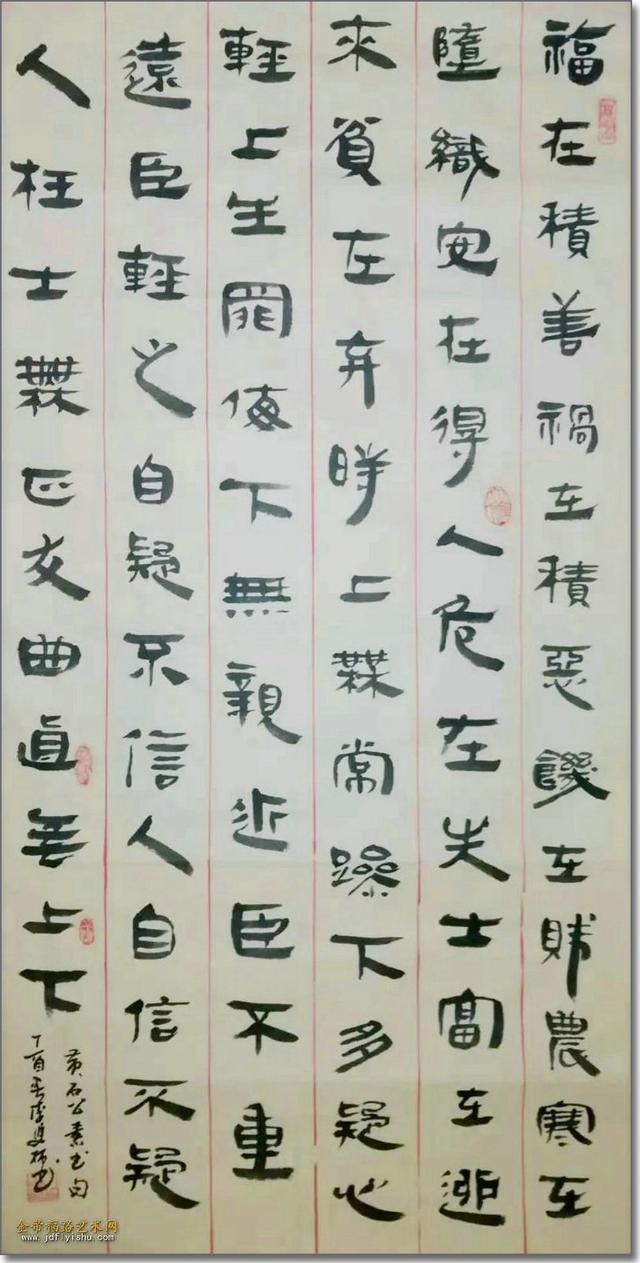 福在積善禍在積惡饑在賤農寒在
墮織安在得人危在失士富在迎
來貧在弃時上無常躁下多疑心
輕上生罪侮下無親近臣不重
遠臣輕之自疑不信人自信不疑
人枉士無正友曲直無上下
黃石公素书句
丁酉春书
www.jdflyishu.com